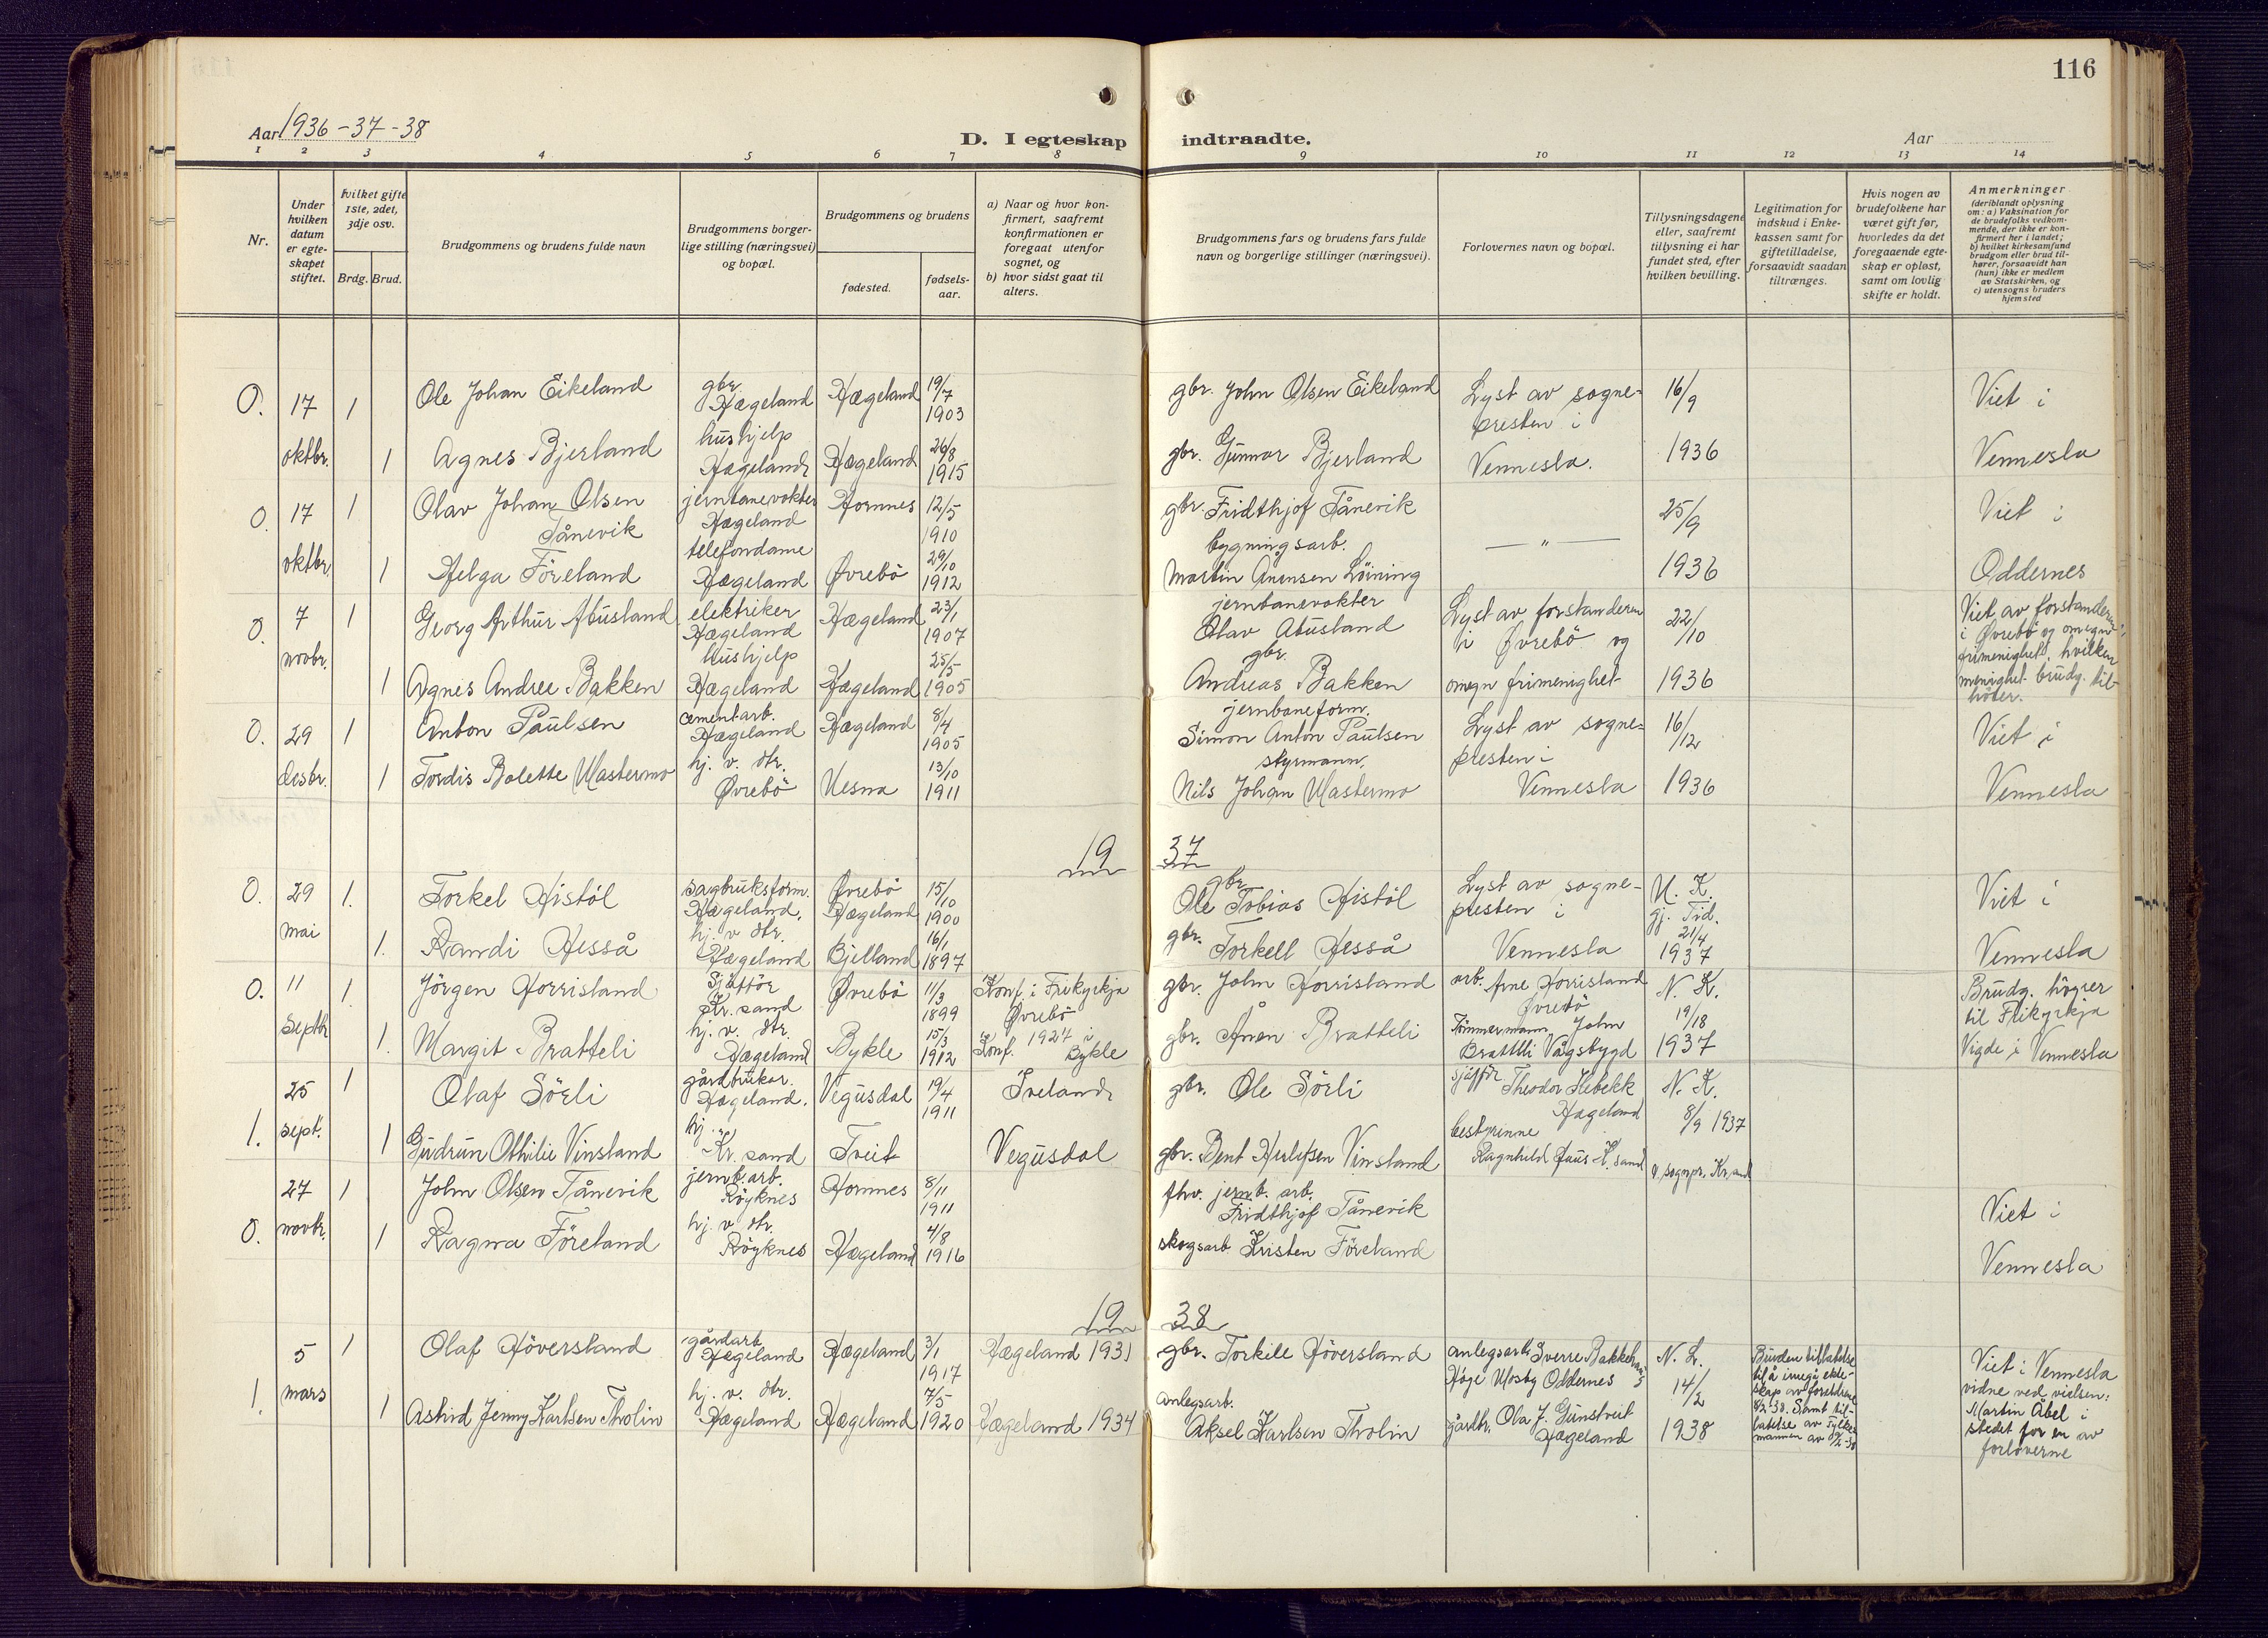 116
Aar 1936-37-38
D. I egteskap indtraadte.
Aar
1 2 3 4 5 6 7 8 9 10 11 12 13 14
Nr.
Under hvilken datum er egteskapet stiftet.
hvilket gifte 1ste, 2det, 3dje osv.
Brdg. Brud.
Brudgommens og brudens fulde navn
Brudgommens borgerlige stilling (næringsvei) og bopæl.
Brudgommens og brudens
fødested.
fødselsaar.
a) Naar og hvor konfirmert, saafremt konfirmationen er foregaat utenfor sognet, og
b) hvor sidst gaat til alters.
Brudgommens fars og brudens fars fulde navn og borgerlige stillinger (næringsvei).
Forlovernes navn og bopæl.
Tillysningsdagene eller, saafremt tillysning ei har fundet sted, efter hvilken bevilling.
Legitimation for indskud i Enkekassen samt for giftetilladelse, forsaavidt saadan tiltrænges.
Hvis nogen av brudefolkene har været gift før, hvorledes da det foregaaende egteskap er opløst, samt om lovlig skifte er holdt.
Anmerkninger (deriblandt oplysning om: a) Vaksination for de brudefolks vedkommende, der ikke er konfirmert her i landet; b) hvilket kirkesamfund brudgom eller brud tilhører, forsaavidt han (hun) ikke er medlem av Statskirken, og c) utensogns bruders hjemsted
O. 17 1 Ole Johan Eikeland gbr. Hægeland Hægeland 19/7 1903 gbr. John Olsen Eikeland Lyst av sogne- 16/9 Viet i
presten i
oktbr. 1 Agnes Bjerland hushjelp Hægeland Hægeland 26/8 1915 gbr. Gunnar Bjerland Vennesla. 1936 Vennesla
O. 17 1 Olav Johan Olsen Tånevik jernbanevokter Hægeland Hornnes 12/5 1910 gbr. Fridthjof Tånevik — " — 25/9 Viet i
oktbr. 1 Helga Föreland telefondame Hægeland Øvrebö 29/10 1912 bygningsarb. Martin Anensen Löining 1936 Oddernes
O. 7 1 Georg Arthur Abusland elektriker Hægeland Hægeland 23/1 1907 jernbanevokter Olav Abusland Lyst av forstanderen i Øvrebö og 22/10 Viet av forstanderen i Øvrebö og omegn
novbr. 1 Agnes Andree Bakken hushjelp Hægeland Hægeland 25/5 1905 gbr. Andreas Bakken omegn frimenighet 1936 frimenighet, hvilken menighet brudg. tilhörer.
O. 29 1 Anton Paulsen cementarb. Hægeland Hægeland 8/4 1905 jernbaneform. Simon Anton Paulsen Lyst av sogne- 16/12 Viet i
presten i
desbr. 1 Tordis Bolette Mastermo hj. v. dtr. Øvrebö Nesna 13/10 1911 styrmann. Nils Johan Mastermo Vennesla 1936 Vennesla
19 37
O. 29 1. Torkel Histöl sagbruksform. Hægeland. Øvrebö Hægeland 15/10 1900 gbr. Ole Tobias Histöl Lyst av sogne- N. K. gj. Tid. Viet i
presten i
mai 1. Randi Hesså hj. v dtr. Hægeland Bjelland 16/1 1897 gbr. Torkell Hesså Vennesla 21/4 1937 Vennesla
O. 11 1. Jörgen Horrisland Sjåffør Kr. sand Øvrebö 11/3 1899 Konf. i Frikyrkja Øvrebö gbr. John Horrisland arb. Arne Horrisland Øvrebö N. K. Brudg. högrer til Frikyrkja
septbr 1. Margit Bratteli hj. v. dtr. Hægeland Bykle 15/3 1912 Konf. 1927 i Bykle gbr. Ånen Bratteli Tömmermann John Brattlli Vågsbygd 19/18 1937 Vigde i Vennesla
25 1 Olaf Sörli gårdbruker. Hægeland. Vegusdal 19/4 1911 Iveland gbr. Ole Sörli sjåfför Theodor Hebekk Hægeland N. K.
1. sept. 1 Gudrun Othilie Vinsland hj. Kr. sand Tveit Vegusdal gbr. Bent Vinsland bestyrinne Ragnhild K. sand 8/9 1937 v. sognpr. Kr.sand
27 1 John Olsen Tånevik jernb. arb. Röyknes Hornnes 8/11 1911 fhv. jernb. arb. Fridthjof Tånevik Viet i
O. novbr. 1 Ragna Föreland hj. v. dtr. Röyknes Hægeland 4/8 1916 skogsarb. Kristen Föreland Vennesla
19 38
5 1 Olaf Höversland gårdarb. Hægeland Hægeland 3/1 1917 Hægeland 1931 gbr. Torkill Höversland anlegsarb. Sverre Bakke Mosby Oddernes N. L. Bruden tillatelse til å inngå ekteskap av foreldrene 8/2-38. Samt tillatelse av Fylkesmannen av Viet i Vennesla vidne ved vielsen:
1. mars 1 Astrid Jenny Karlsen Tholin hj. v. dtr. Hægeland Hægeland 7/5 1920 Hægeland 1934 anlegsarb. Aksel Karlsen Tholin gårdbr. Ola J. Gunstveit Hægeland 14/2 1938 Martin Abel i stedet for en av forloverne